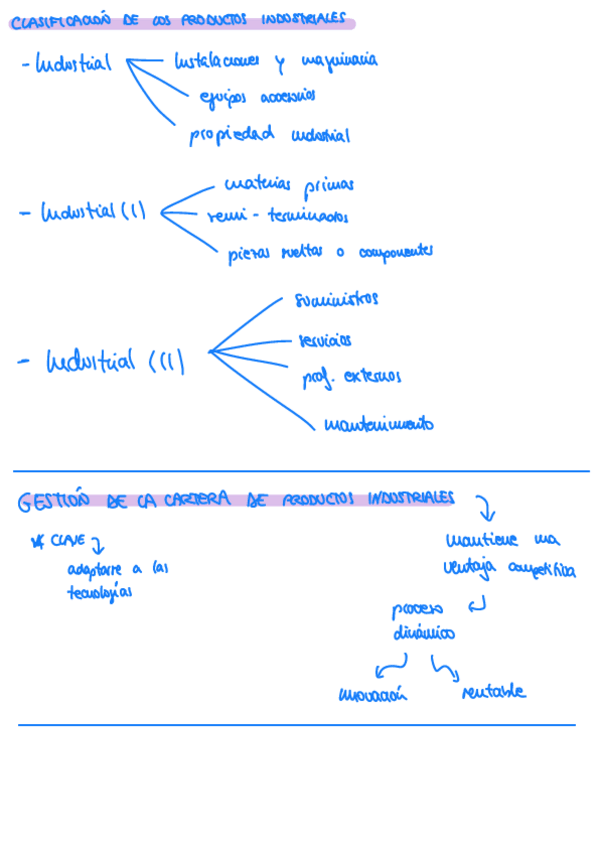 CLASIFICACIÓN DE LOS PRODUCTOS INDUSTRIALES
- Industrial
Instalaciones y maquinaria
equipos accesorios
propiedad industrial
- Industrial (I)
materias primas
semi - terminados
piezas sueltas o componentes
- Industrial (II)
suministros
servicios
prof. externos
mantenimiento
GESTIÓN DE LA CARTERA DE PRODUCTOS INDUSTRIALES
* CLAVE
adaptarse a las
tecnologías
mantiene una
ventaja competitiva
proceso
dinámico
innovación
rentable